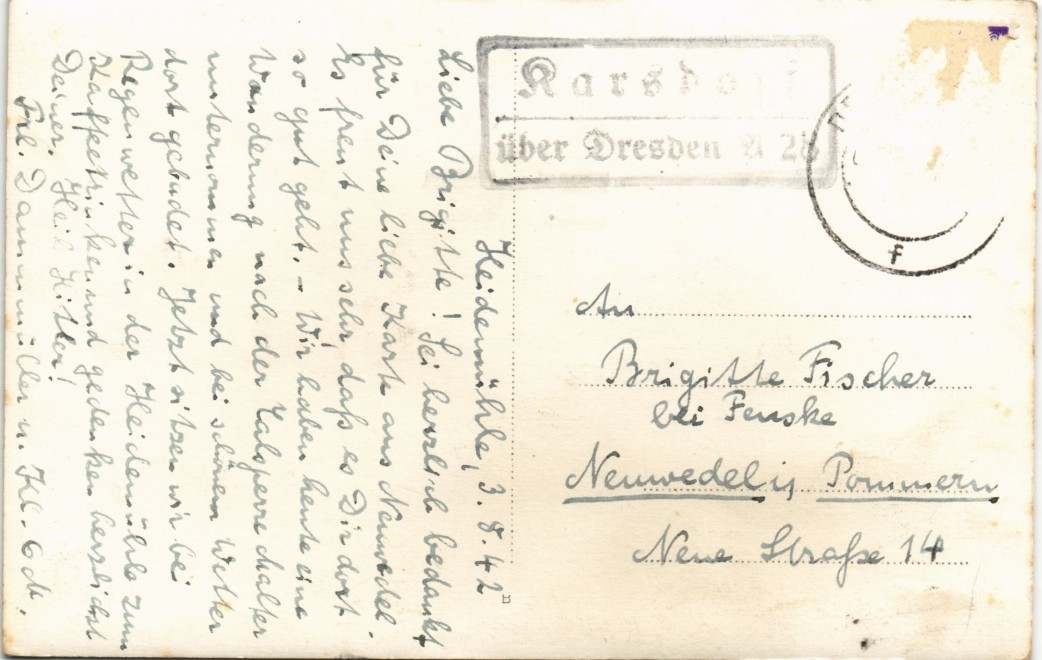 Karsdorf
über Dresden A 28
f
Heidemühle, 3. 8. 42
Liebe Brigitte! Sei herzlich bedankt
für Deine liebe Karte aus Neuwedel.
Es freut uns sehr daß es Dir dort
so gut geht. – Wir haben heute eine
Wanderung nach der Talsperre Malter
unternommen und bei schönem Wetter
dort gebadet. Jetzt sitzen wir bei
Regenwetter in der Heidemühle zum
Kaffeetrinken und gedenken herzlichst
Deiner. Heil Hitler!
Frl. Dammüller u. Kl. 6d.
An
Brigitte Fischer
bei Fenske
Neuwedel i, Pommern
Neue Straße 14